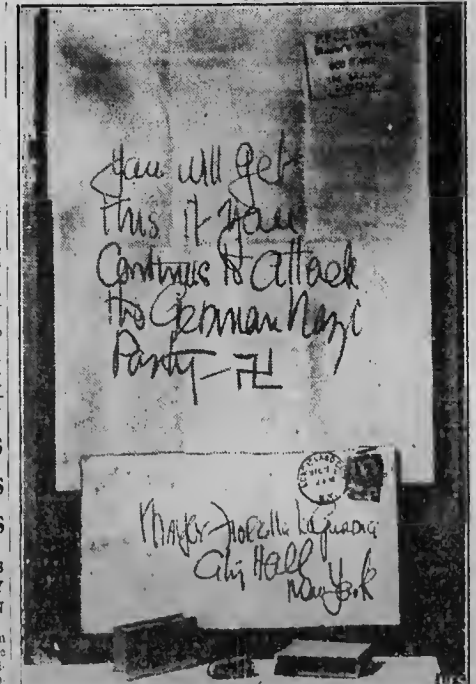 you will get
this if you
Continue to attack
the German Nazi
Party - 卍
Mayor Fiorella Laguardia
City Hall
New York